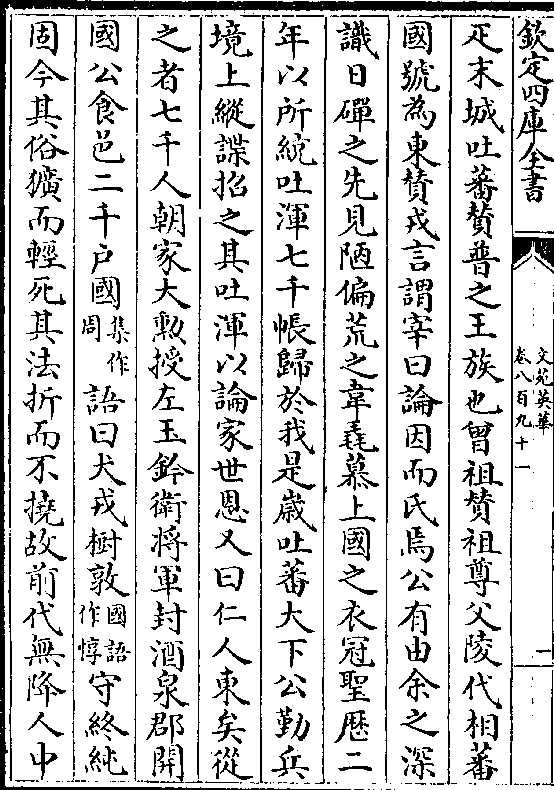 欽定四庫全書
文苑英華
卷八百九十一
一
疋末城吐蕃贊普之王族也曾祖贊祖尊父陵代相蕃
國號為東贊戎言謂宰曰論因而氏焉公有由余之深
識日磾之先見陋偏荒之韋毳慕上國之衣冠聖厯二
年以所統吐渾七千帳歸於我是歲吐蕃大下公勤兵
境上縱諜招之其吐渾以論家世恩又曰仁人東矣從
之者七千人朝家大勲授左玉鈐衛將軍封酒泉郡開
國公食邑二千户國集作周語曰犬戎樹敦國語作惇守終純
固今其俗獷而輕死其法折而不撓故前代無降人中